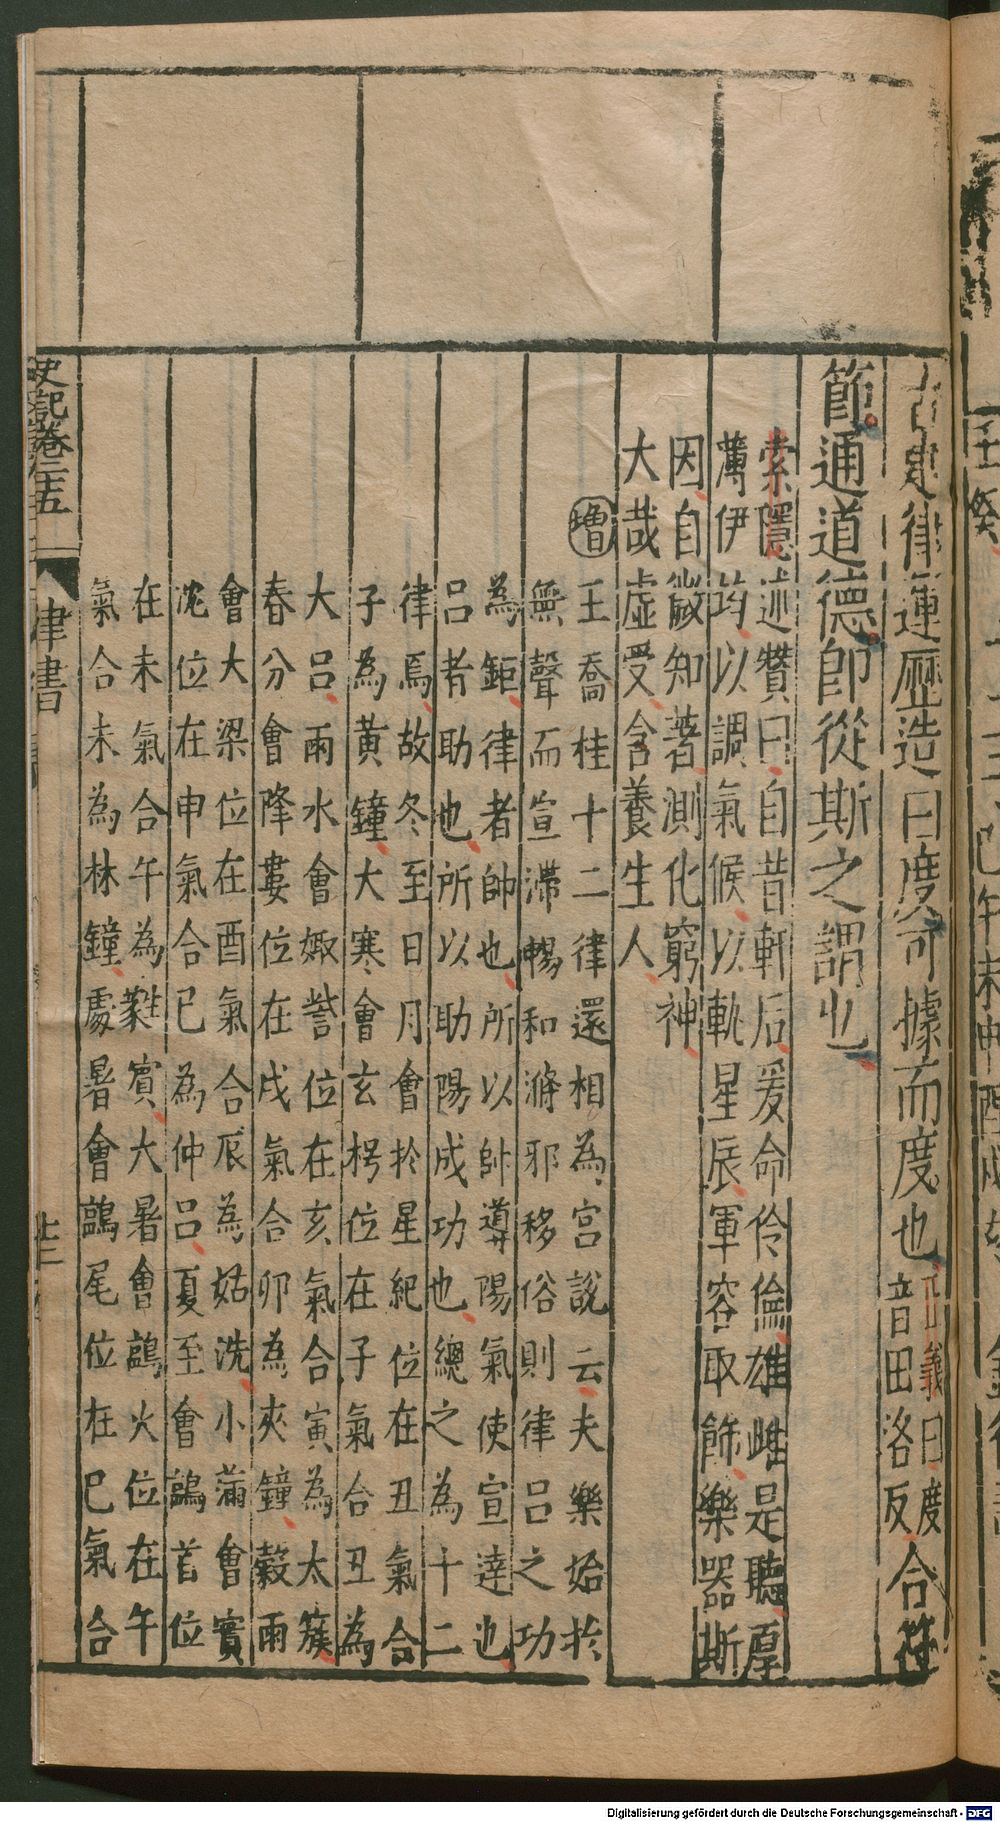 古建律運歷造日度可據而度也正義曰度音田洛反合符
節通道德即從斯之謂也
索隱述贊曰自昔軒后爰命伶倫雄雌是聽厚
薄伊均以調氣候以軌星辰軍容取飾樂器斯
因自微知著測化窮神
大哉虛受含養生人
增王喬桂十二律還相為宮說云夫樂始於
無聲而宣滯暢和滌邪移俗則律呂之功
為鉅律者帥也所以帥導陽氣使宣達也
呂者助也所以助陽成功也總之為十二
律焉故冬至日月會於星紀位在丑氣合
子為黃鐘大寒會玄枵位在子氣合丑為
大呂雨水會娵訾位在亥氣合寅為太簇
春分會降婁位在戌氣合卯為夾鐘穀雨
會大梁位在酉氣合辰為姑洗小滿會實
沈位在申氣合巳為仲呂夏至會鶉首位
在未氣合午為蕤賓大暑會鶉火位在午
氣合未為林鐘處暑會鶉尾位在巳氣合
史記卷二十五
律書
Digitalisierung gefördert durch die Deutsche Forschungsgemeinschaft - DFG